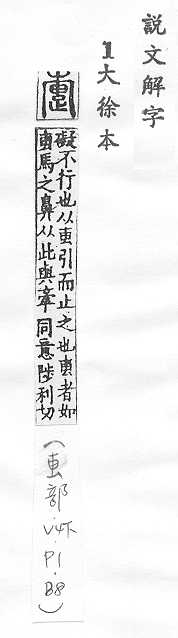 説文解字
1大徐本
疐
礙不行也从叀引而止之也叀者如
叀馬之鼻从此與牽同意陟利切
(叀部 V4下.P1.B8)